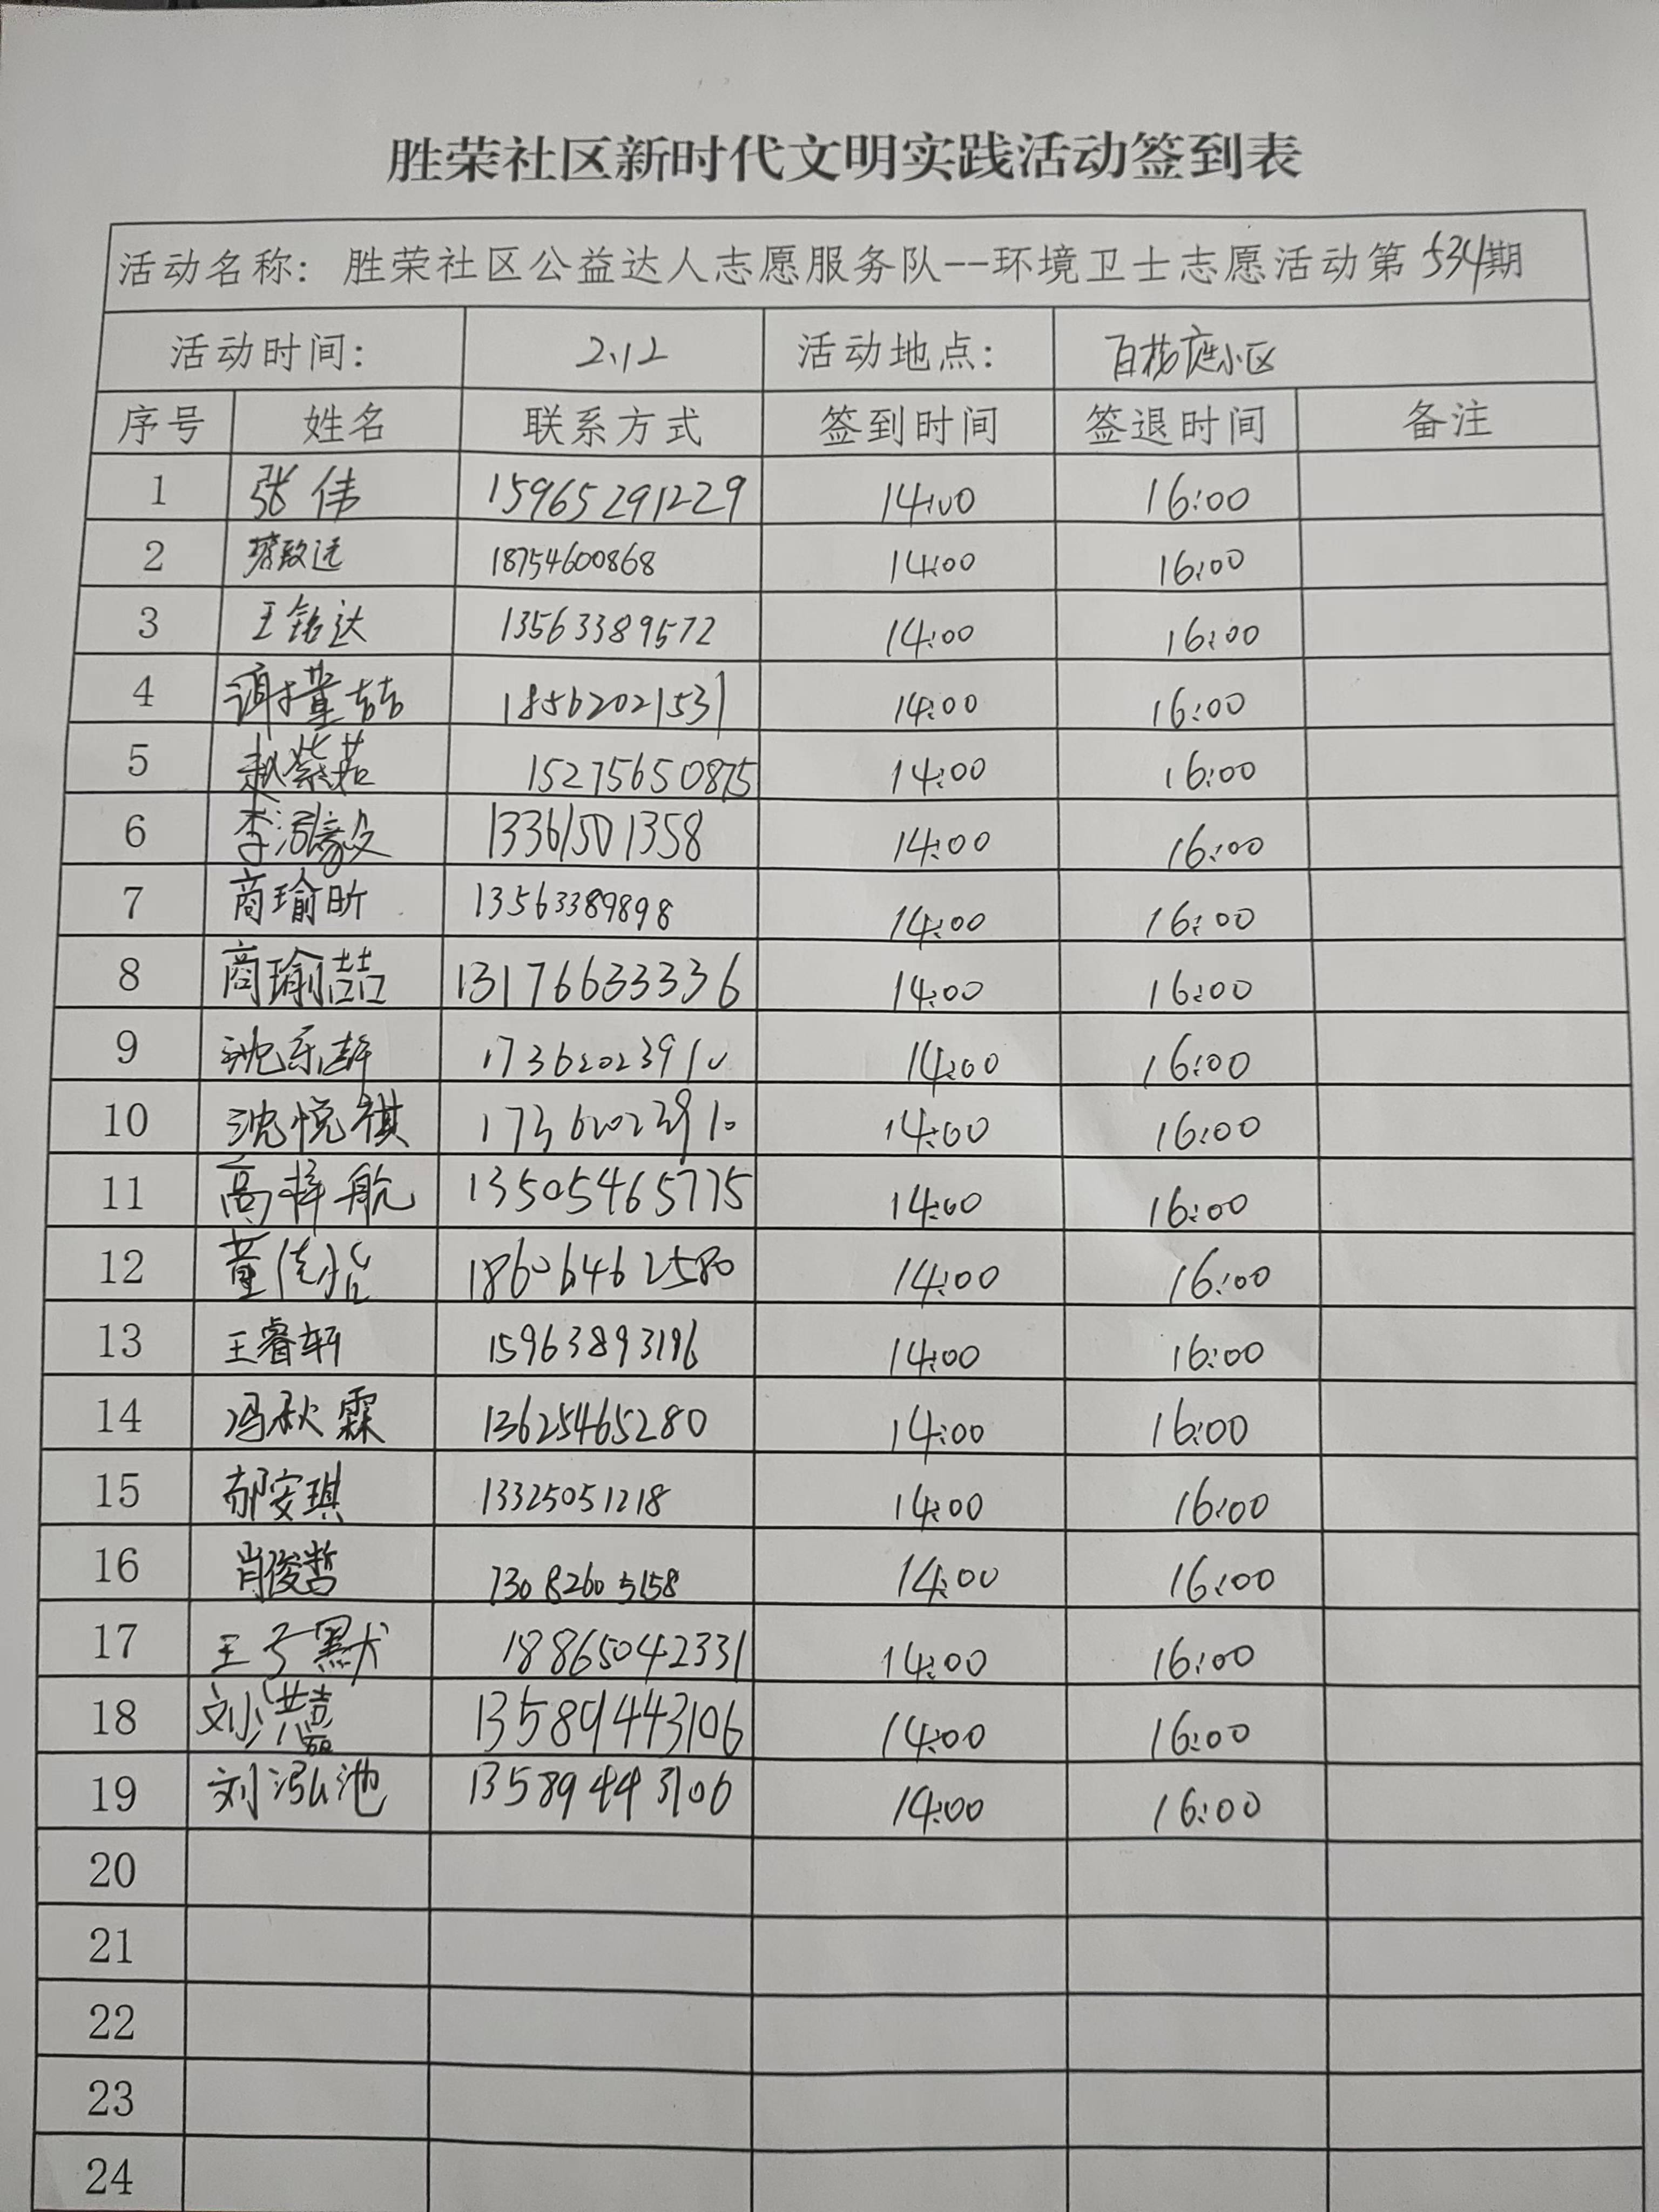 胜荣社区新时代文明实践活动签到表
活动名称: 胜荣社区公益达人志愿服务队--环境卫士志愿活动第534期
活动时间: 2.12 活动地点: 百杨庭小区
序号 姓名 联系方式 签到时间 签退时间 备注
1 张伟 15965291229 14:00 16:00
2 18754600868 14:00 16:00
3 王铭达 13563389572 14:00 16:00
4 18562021531 14:00 16:00
5 赵紫若 15275650875 14:00 16:00
6 13361501358 14:00 16:00
7 商瑜昕 13563389898 14:00 16:00
8 商瑜喆 13176633336 14:00 16:00
9 17362023910 14:00 16:00
10 沈悦祺 17362023910 14:00 16:00
11 高梓航 13505465775 14:00 16:00
12 董佳怡 18606462580 14:00 16:00
13 王睿轩 15963893196 14:00 16:00
14 冯秋霖 13625465280 14:00 16:00
15 郝安琪 13325051218 14:00 16:00
16 肖俊哲 13082605158 14:00 16:00
17 王子默 18865042331 14:00 16:00
18 13589443106 14:00 16:00
19 刘泓池 13589443106 14:00 16:00
20
21
22
23
24